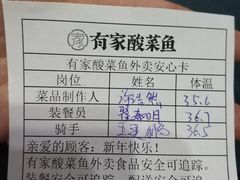 家 有家酸菜鱼
有家酸菜鱼外卖安心卡
岗位 姓名 体温
菜品制作人 35.6
装餐员 36.7
骑手 36.5
亲爱的顾客：新年快乐！
有家酸菜鱼外卖食品安全可追踪。
装餐安全可追踪、配送安全可追